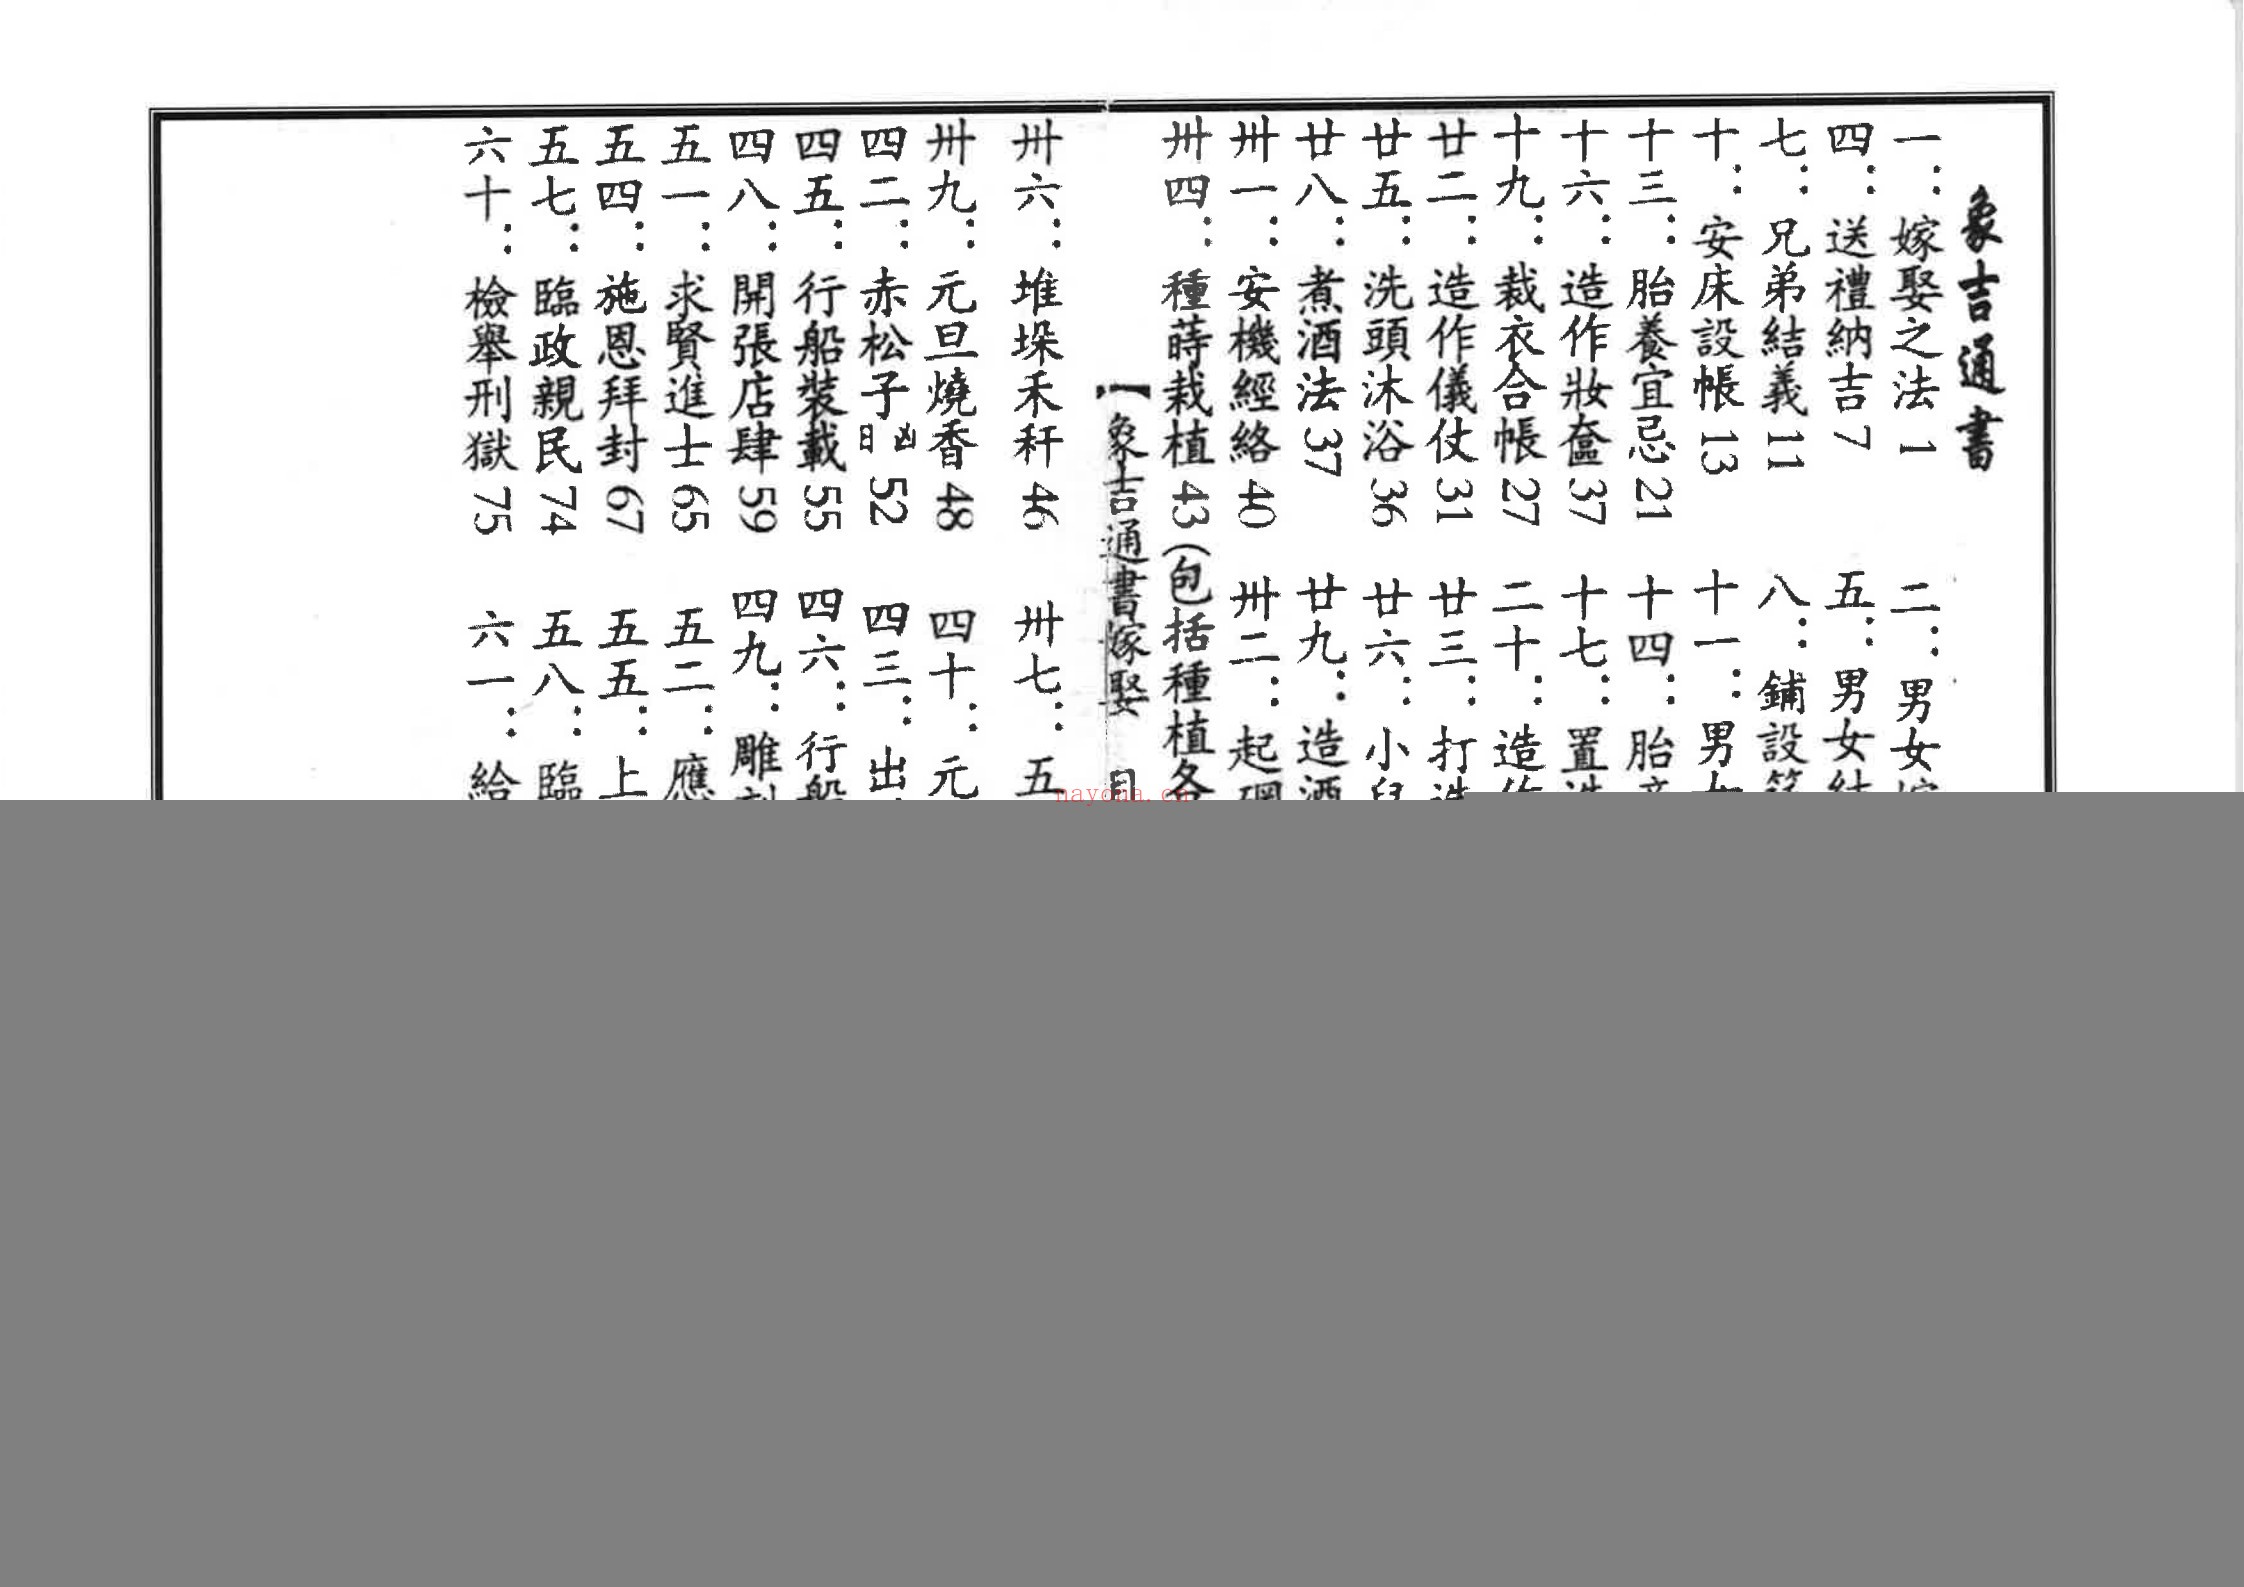 象吉通書
一：嫁娶之法 1 二：男女
四：送禮納吉 7 五：男女
七：兄弟結義 11 八：鋪設
十：安床設帳 13 十一：男
十三：胎養宜忌 21 十四：胎
十六：造作妝奩 37 十七：置
十九：裁衣合帳 27 二十：造
廿二：造作儀仗 31 廿三：打
廿五：洗頭沐浴 36 廿六：小
廿八：煮酒法 37 廿九：造
卅一：安機經絡 40 卅二：起
卅四：種蒔栽植 43 (包括種植
【象吉通書嫁娶
卅六：堆垛禾秆 46 卅七：五
卅九：元旦燒香 48 四十：元
四二：赤松子凶日 52 四三：出
四五：行船裝載 55 四六：行
四八：開張店肆 59 四九：雕
五一：求賢進士 65 五二：應
五四：施恩拜封 67 五五：上
五七：臨政親民 74 五八：臨
六十：檢舉刑獄 75 六一：給
nayona.cn